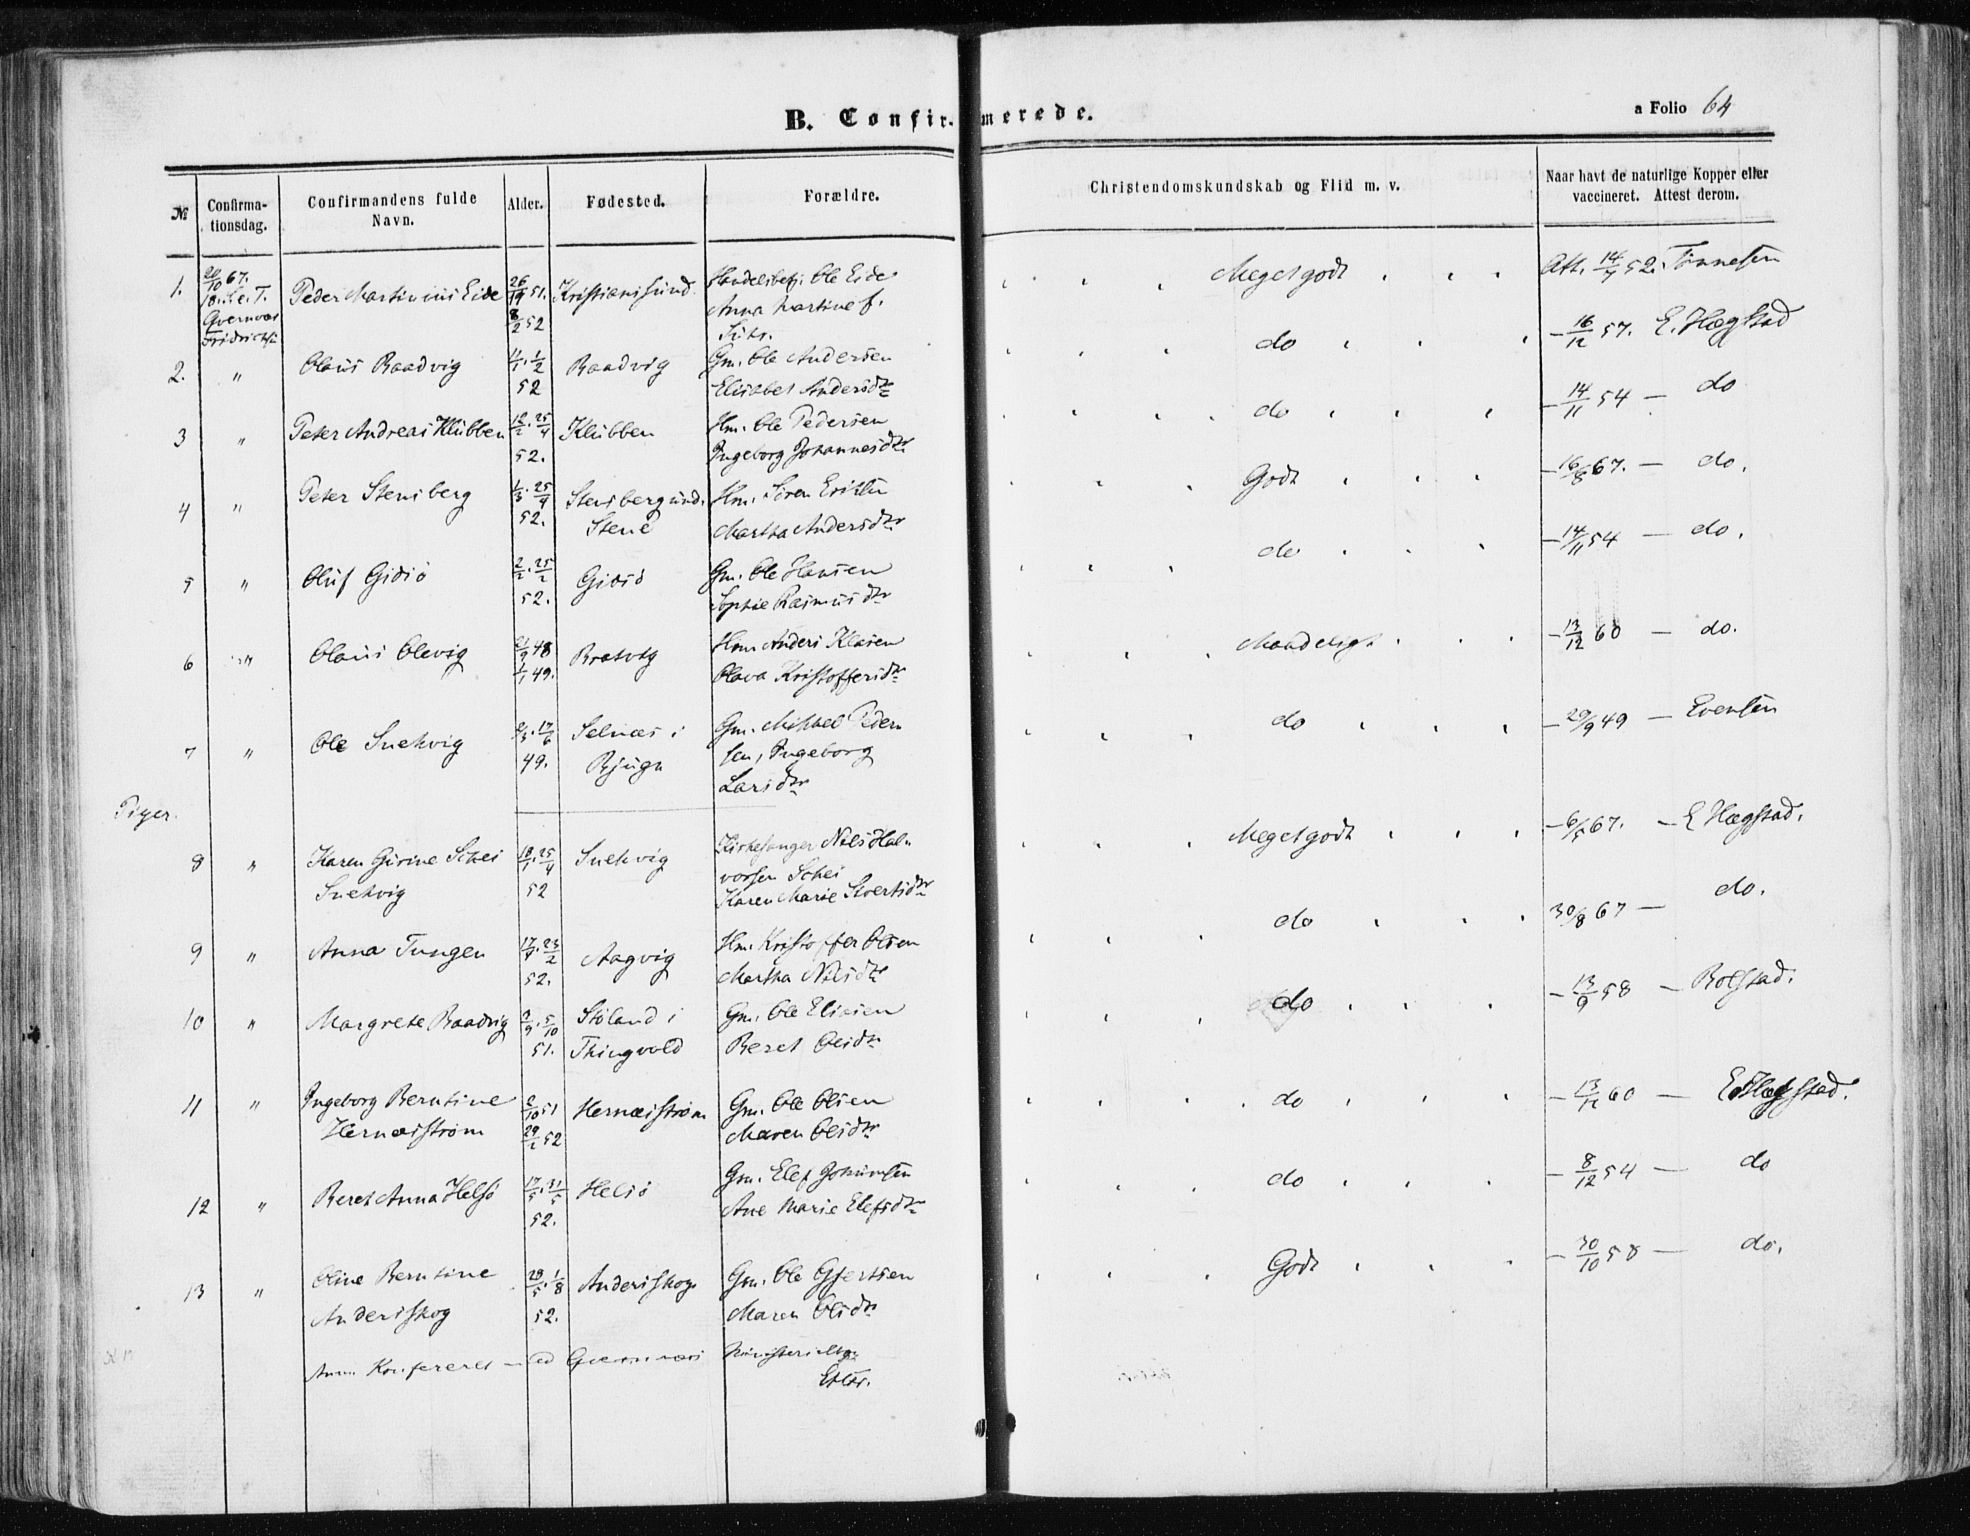 B. Confirmerede.
a Folio 64
№
Confirmationsdag.
Confirmandens fulde Navn.
Alder.
Fødested.
Forældre.
Christendomskundskab og Flid m. v.
Naar havt de naturlige Kopper eller vaccineret. Attest derom.
1. 20/10 67. 18. S. e. T. Qvernvæs Peder Martinius Eide 26/19 51. 8/2 52 Kristiansund Handelsbetj. Ole Eide
Anna Martine f.
Meget godt Att. 14/9 52. Tønnesen
2. " Olaus Raadvig 11/1 . 1/2 52 Raadvig Gm. Ole Andersen
Elisabet Andersdtr
do - 16/12 57. E. Hægstad
3 " Peter Andreas Klubben 12/2 . 25/4 52. Klubben Hm. Ole Pedersen
Ingeborg Johannesdtr
do - 14/11 54 - do
4 " Peter Stensberg 1/3 . 25/4 52. Stensberg und. Stene Hm. Søren Eriksen
Martha Andersdtr
Godt - 16/8 67. - do.
5 " Oluf Gidsö 2/2 . 25/2 52. Gidsö Gm. Ole Hansen
Sophie Rasmusdtr
do - 14/11 54 - do.
6 " Olaus Olevig 21/9 48 1/1 49. Bratvig Hm Anders Klasen
Olava Kristoffersdtr
Maadeligt - 13/12 60 - do.
7 " Ole Snekvig 2/5 . 17/6 49. Selnæs i Bjugn Gm. Mikkel Peder
sen, Ingeborg
Larsdtr
do - 29/9 49 - Evensen
Piger.
8 " Karen Girine Schei
Snekvig 18/1 . 25/4 52 Snekvig Kirkesanger Nils Hal-
vorsen Schei
Karen Marie Sivertsdtr
Meget godt - 6/5 67. - E Hægstad.
9 " Anna Tungen 17/7 . 23/2 52. Aagvig Hm. Kristoffer Olsen
Martha Nilsdtr
do 30/8 67 - do.
10 " Margrete Raadvig 2/9 . 5/10 51. Stöland i Thingvold Gm. Ole Eliasen
Beret Olsdtr
do - 13/9 58 - Rolstad.
11 " Ingeborg Berntine
Hernæsstrøm 2/10 51 29/2 52 Hernæsstrøm Gm. Ole Olsen
Maren Olsdtr
do - 13/12 60 - E Hægstad.
12 " Beret Anna Helsö 17/5 . 31/5 52. Helsö Gm. Elef
Ane Marie Elefsdtr
do - 8/12 54 - do
13 " Oline Berntine
Andersskog 28/5 . 1/8 52. Andersskog Gm. Ole Gjertsen
Maren Olsdtr
Godt - 30/10 58 - do.
Anm. Konfereret